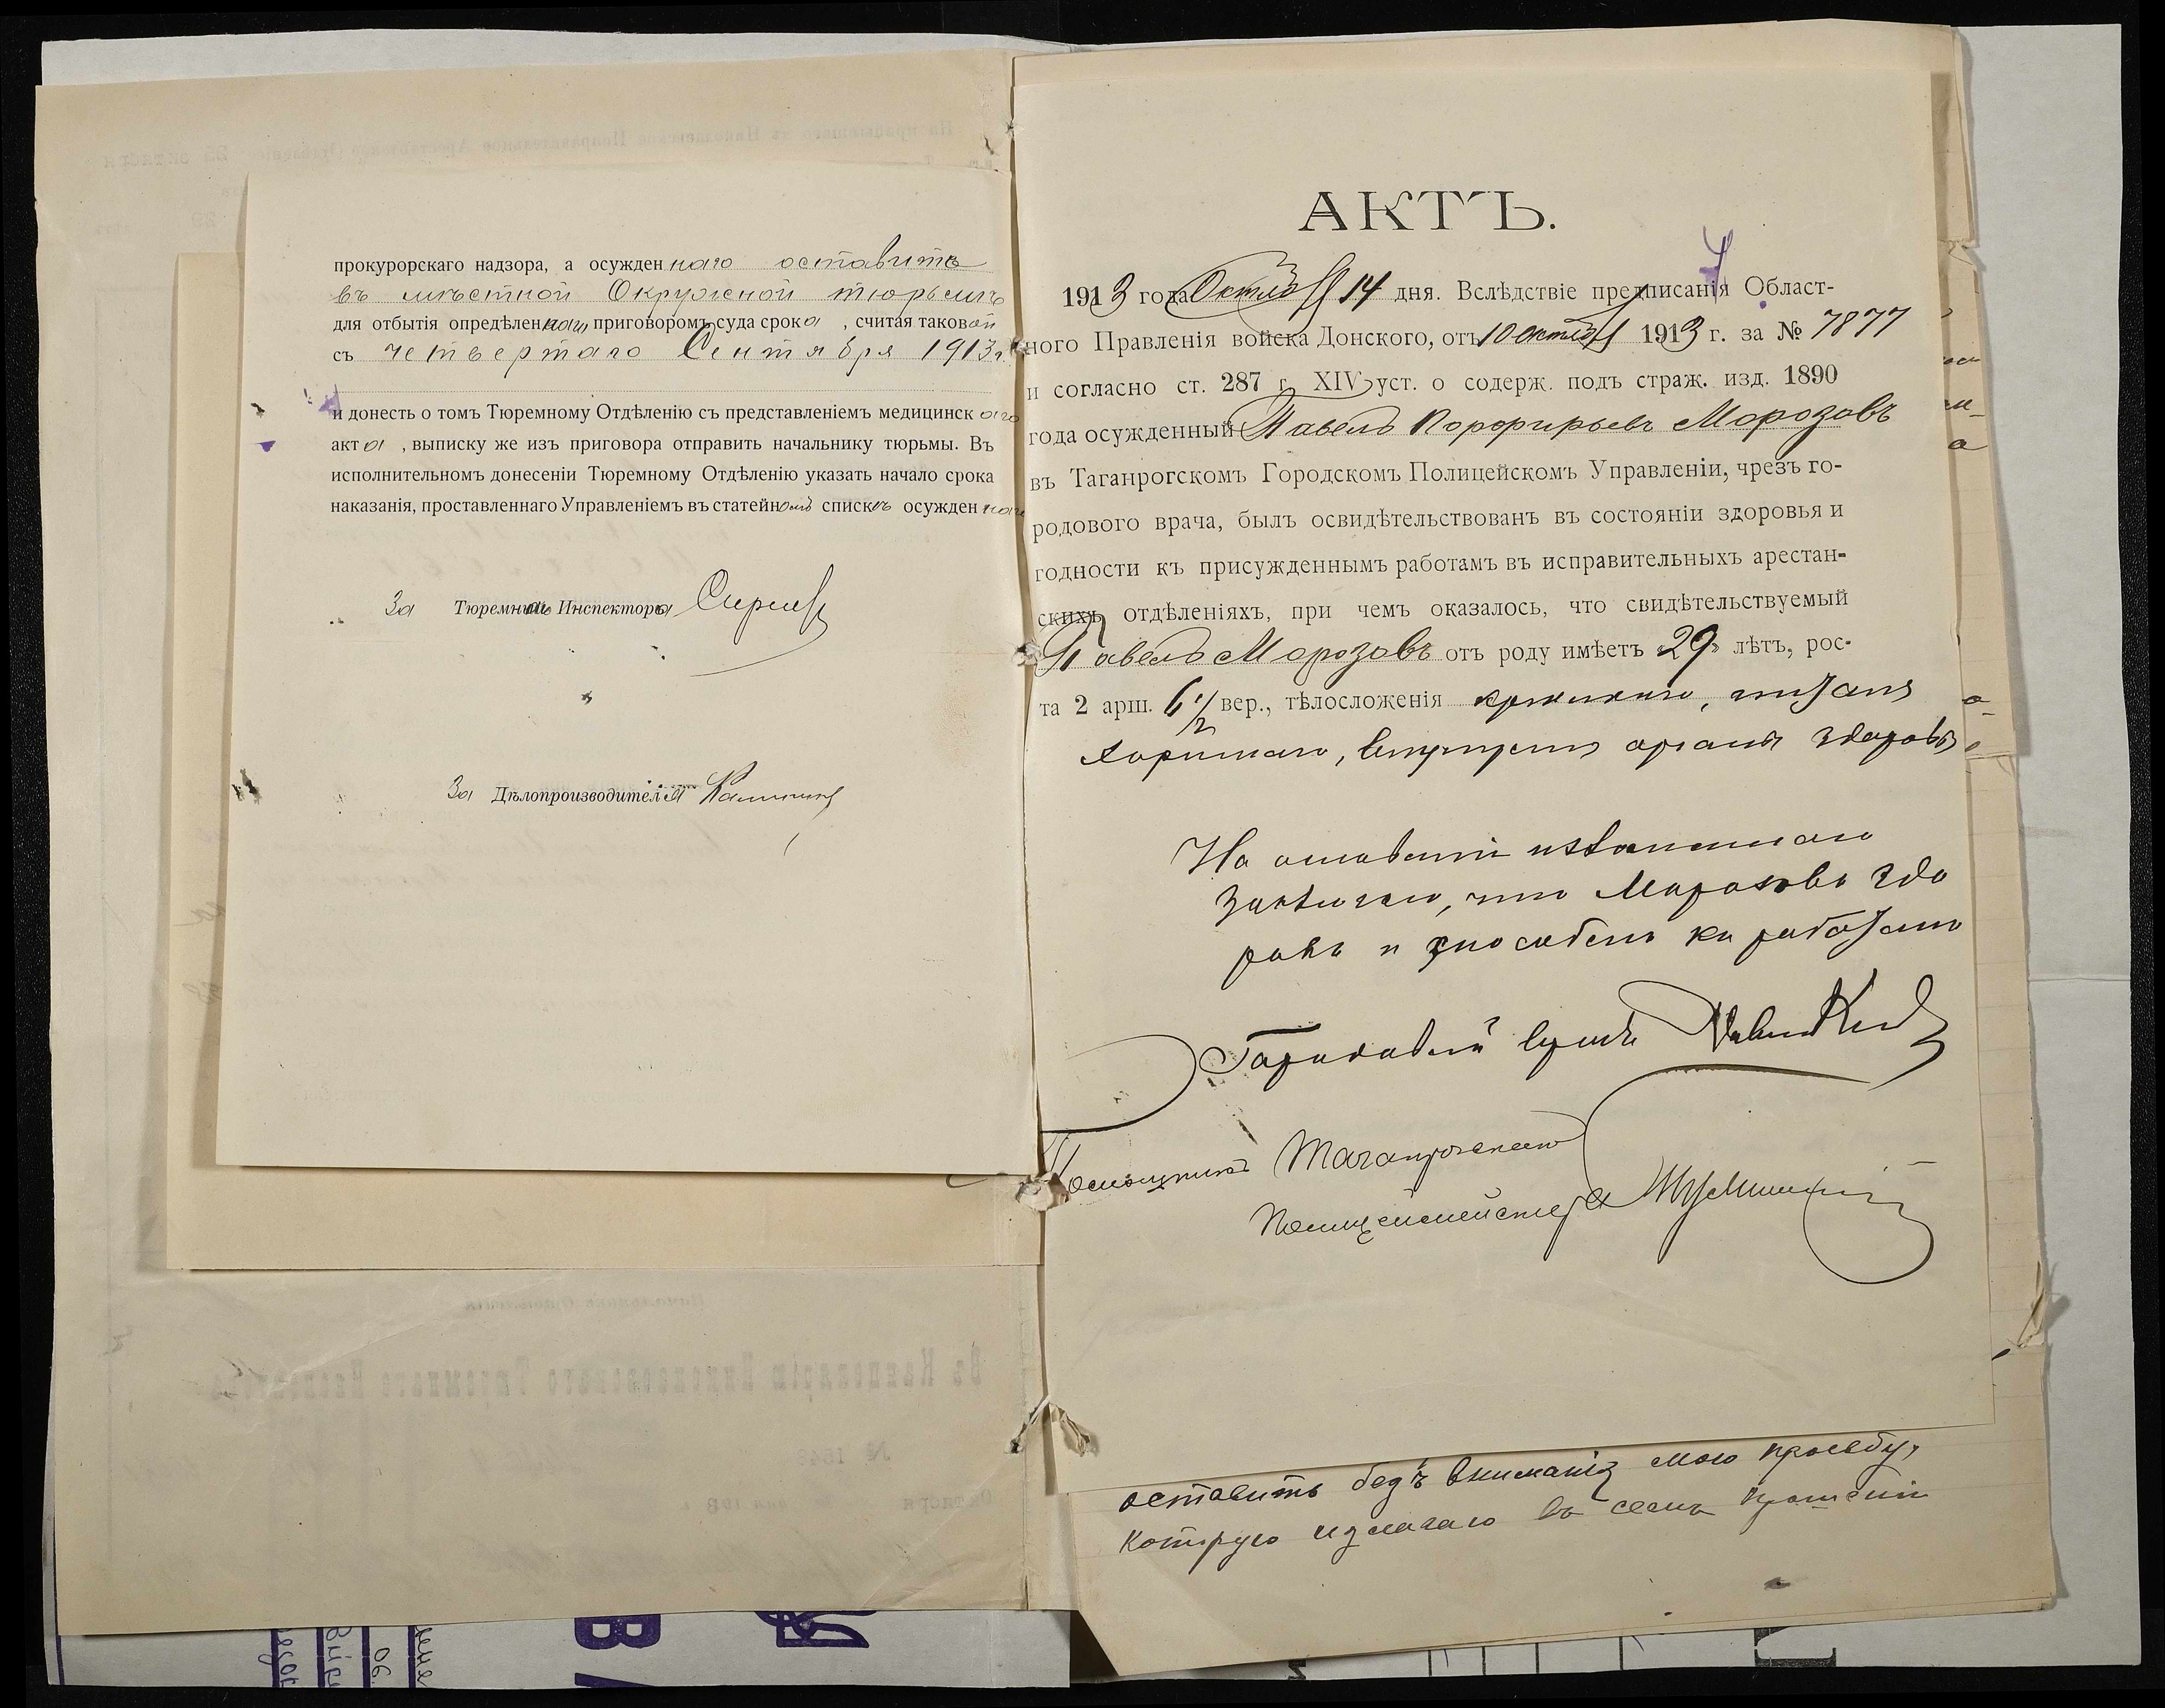 прокурорскаго надзора, а осужденнаго оставить
въ мѣстной Окружной тюрьмѣ
для отбытія опредѣленнаго приговоромъ суда срока, считая таковой
съ четвертаго Сентября 1913 г.
и донесть о томъ Тюремному Отдѣленію съ представленіемъ медицинскаго
акта, выписку же изъ приговора отправить начальнику тюрьмы. Въ
исполнительномъ донесеніи Тюремному Отдѣленію указать начало срока
наказанія, проставленнаго Управленіемъ въ статейномъ спискѣ осужденнаго
За Тюремнаго Инспектора
За Дѣлопроизводителя
АКТЪ.
1913 года Октября 14 дня. Вслѣдствіе предписанія Област-
ного Правленія войска Донского, отъ 10 октября 1913 г. за № 7877
и согласно ст. 287 г. XIV уст. о содерж. подъ страж. изд. 1890
года осужденный Павелъ Порфирьевъ Морозовъ
въ Таганрогскомъ Городскомъ Полицейскомъ Управленіи, чрезъ го-
родового врача, былъ освидѣтельствованъ въ состояніи здоровья и
годности къ присужденнымъ работамъ въ исправительныхъ арестан-
скихъ отдѣленіяхъ, при чемъ оказалось, что свидѣтельствуемый
Павелъ Морозовъ отъ роду имѣетъ 29 лѣтъ, рос-
та 2 арш. 6 1/2 вер., тѣлосложенія крѣпкаго, питанія
хорошаго, внутрен. органы здоровы
На основаніи изложеннаго
заключаю, что Морозовъ здо
ровъ и способенъ къ работамъ
Городовой врачъ
Помощникъ Таганрогскаго
Полицеймейстера
оставить безъ вниманія мою просьбу,
которую излагаю въ семъ прошеніи